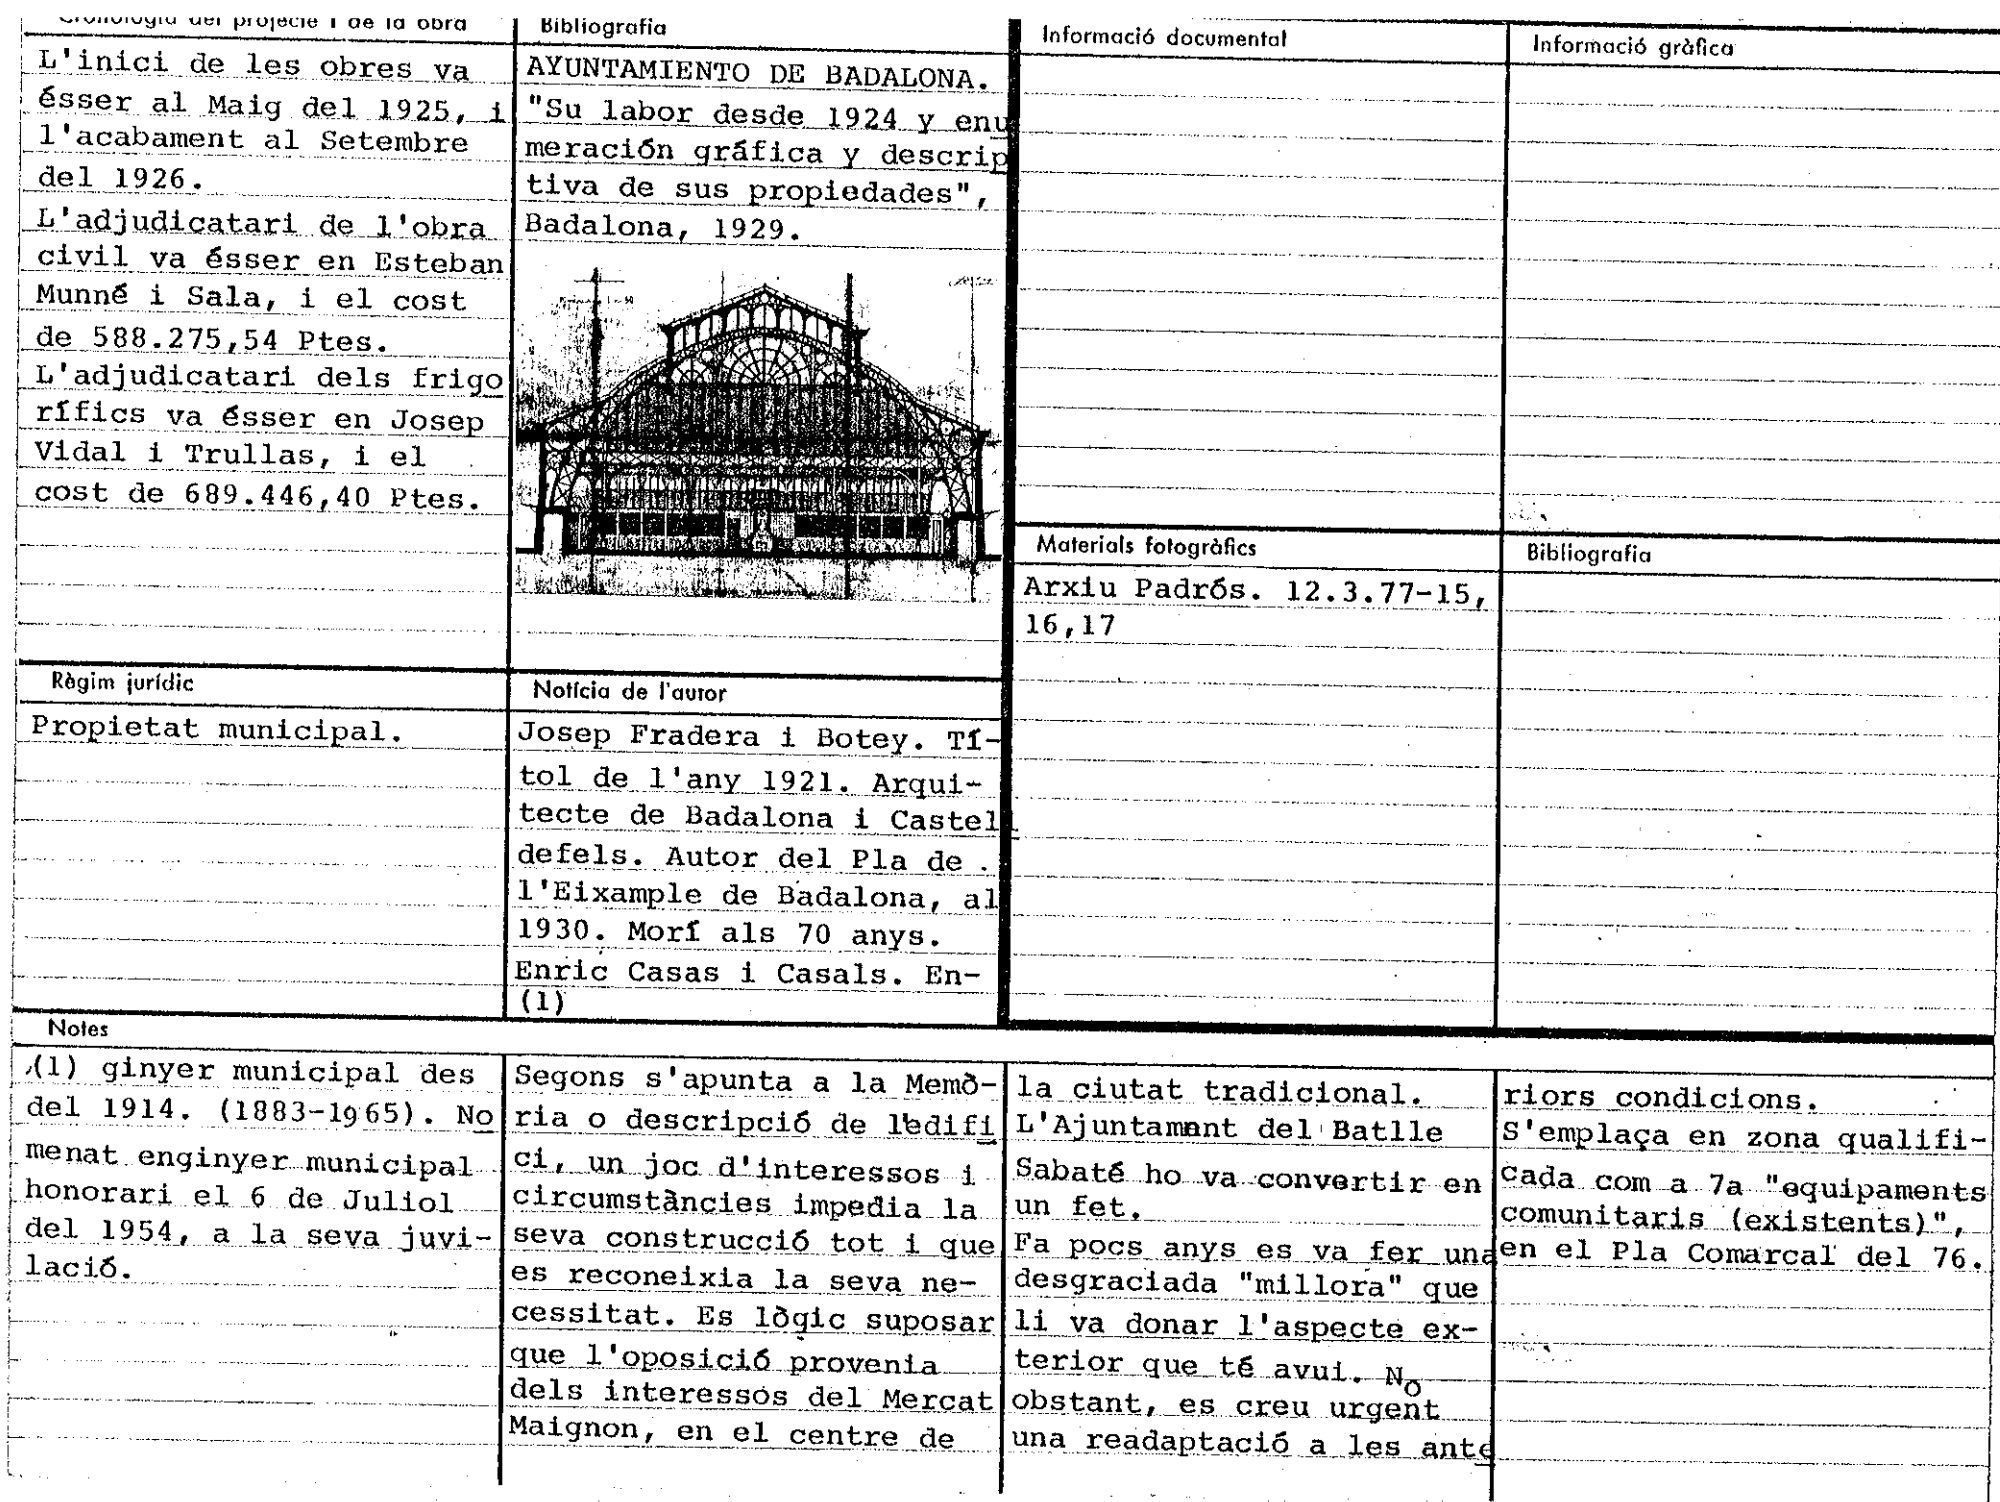 Cronologia del projecte i de la obra
L'inici de les obres va
ésser al Maig del 1925, i
l'acabament al Setembre
del 1926.
L'adjudicatari de l'obra
civil va ésser en Esteban
Munné i Sala, i el cost
de 588.275,54 Ptes.
L'adjudicatari dels frigo
rífics va ésser en Josep
Vidal i Trullas, i el
cost de 689.446,40 Ptes.
Bibliografia
AYUNTAMIENTO DE BADALONA.
"Su labor desde 1924 y enu
meración gráfica y descrip
tiva de sus propiedades",
Badalona, 1929.
Informació documental
Informació gràfica
Materials fotogràfics
Arxiu Padrós. 12.3.77-15,
16,17
Bibliografia
Règim jurídic
Propietat municipal.
Notícia de l'autor
Josep Fradera i Botey. Tí-
tol de l'any 1921. Arqui-
tecte de Badalona i Castell
defels. Autor del Pla de
l'Eixample de Badalona, al
1930. Morí als 70 anys.
Enric Casas i Casals. En-
(1)
Notes
(1) ginyer municipal des
del 1914. (1883-1965). No
menat enginyer municipal
honorari el 6 de Juliol
del 1954, a la seva juvi-
lació.
Segons s'apunta a la Memò-
ria o descripció de l'edifi
ci, un joc d'interessos i
circumstàncies impedia la
seva construcció tot i que
es reconeixia la seva ne-
cessitat. Es lògic suposar
que l'oposició provenia
dels interessos del Mercat
Maignon, en el centre de
la ciutat tradicional.
L'Ajuntament del Batlle
Sabaté ho va convertir en
un fet.
Fa pocs anys es va fer una
desgraciada "millora" que
li va donar l'aspecte ex-
terior que té avui. No
obstant, es creu urgent
una readaptació a les ante
riors condicions.
S'emplaça en zona qualifi-
cada com a 7a "equipaments
comunitaris (existents)",
en el Pla Comarcal del 76.